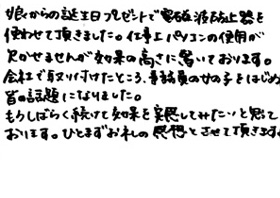 娘からの誕生日プレゼントで電磁波防止器を
使わせて頂きました。仕事上パソコンの使用が
欠かせませんが効果の高さに驚いております。
会社で取り付けたところ、事務員の女の子をはじめ
皆の話題になりました。
もうしばらく続けて効果を実感してみたいと思って
おります。ひとまずお礼の感想とさせて頂きます。